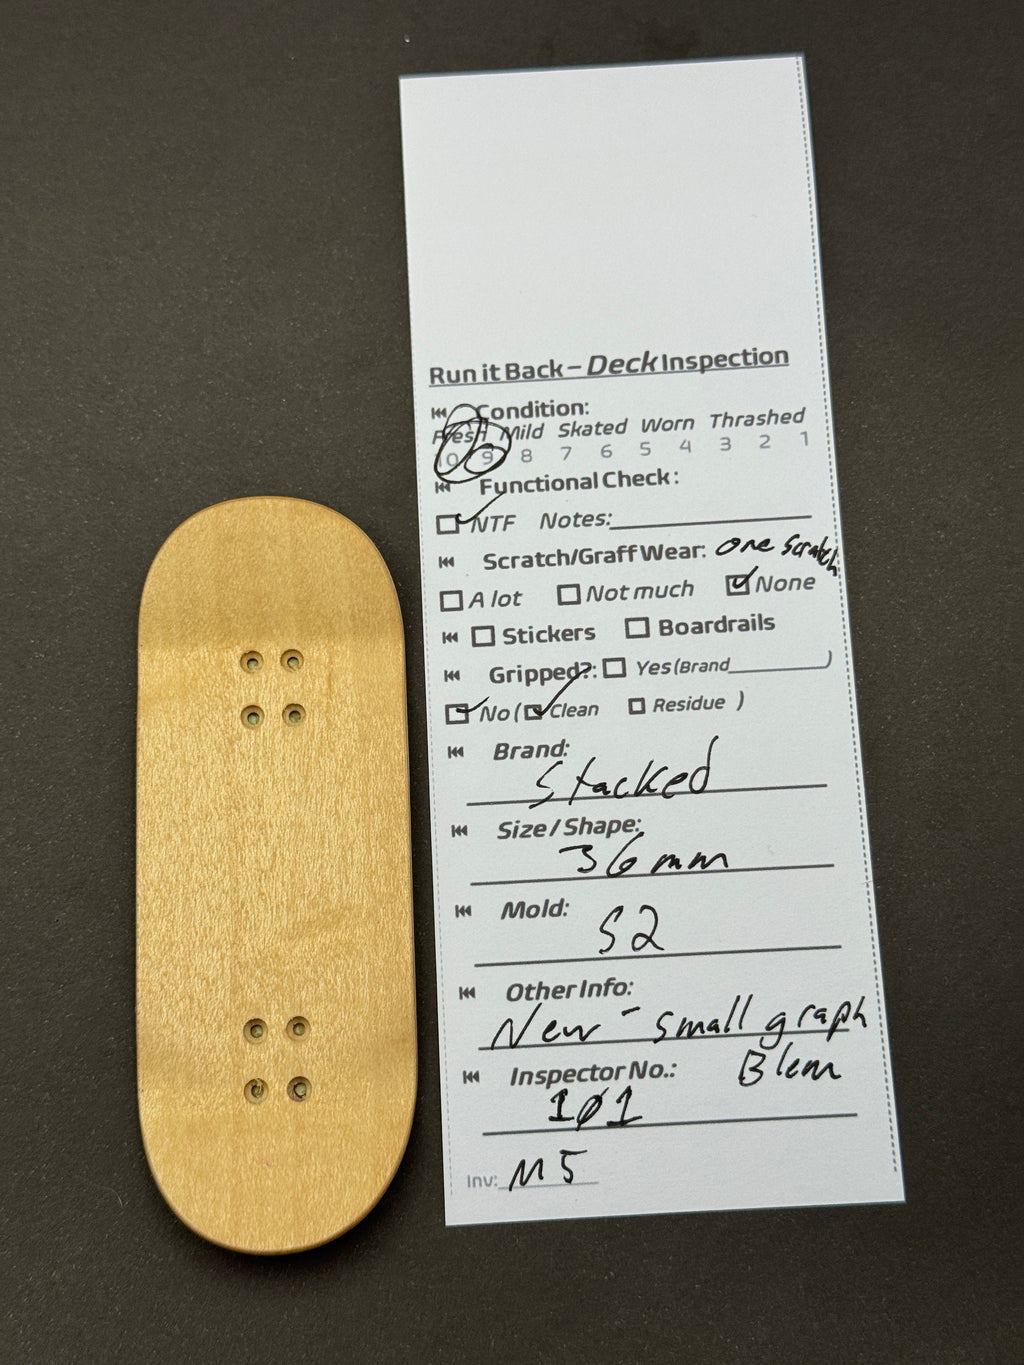 Run it Back – Deck Inspection
Condition:
Fresh Mild Skated Worn Thrashed
10 9 8 7 6 5 4 3 2 1
Functional Check:
NTF Notes:
Scratch/Graff Wear: one scratch
A lot Not much None
Stickers Boardrails
Gripped?: Yes (Brand )
No ( Clean Residue )
Brand:
Stacked
Size / Shape:
36mm
Mold:
S2
Other Info:
New - small graph
Blem
Inspector No.:
101
Inv: M5